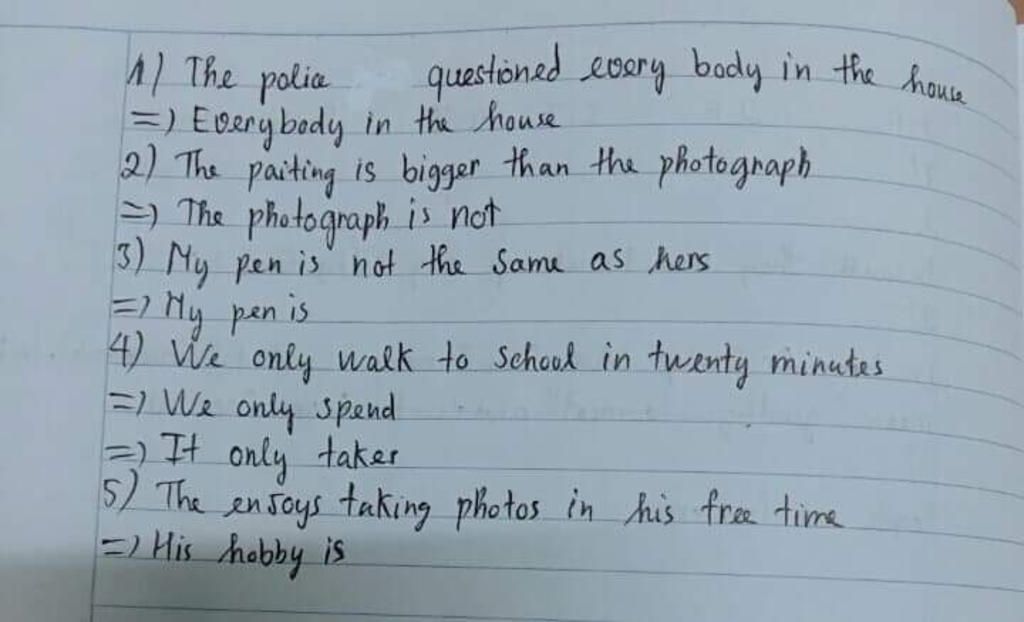 1) The police questioned every body in the house
=) Everybody in the house
2) The paiting is bigger than the photograph
=) The photograph is not
3) My pen is not the same as hers
=) My pen is
4) We only walk to school in twenty minutes
=) We only spend
=) It only takes
5) The ensoys taking photos in his free time
=) His hobby is